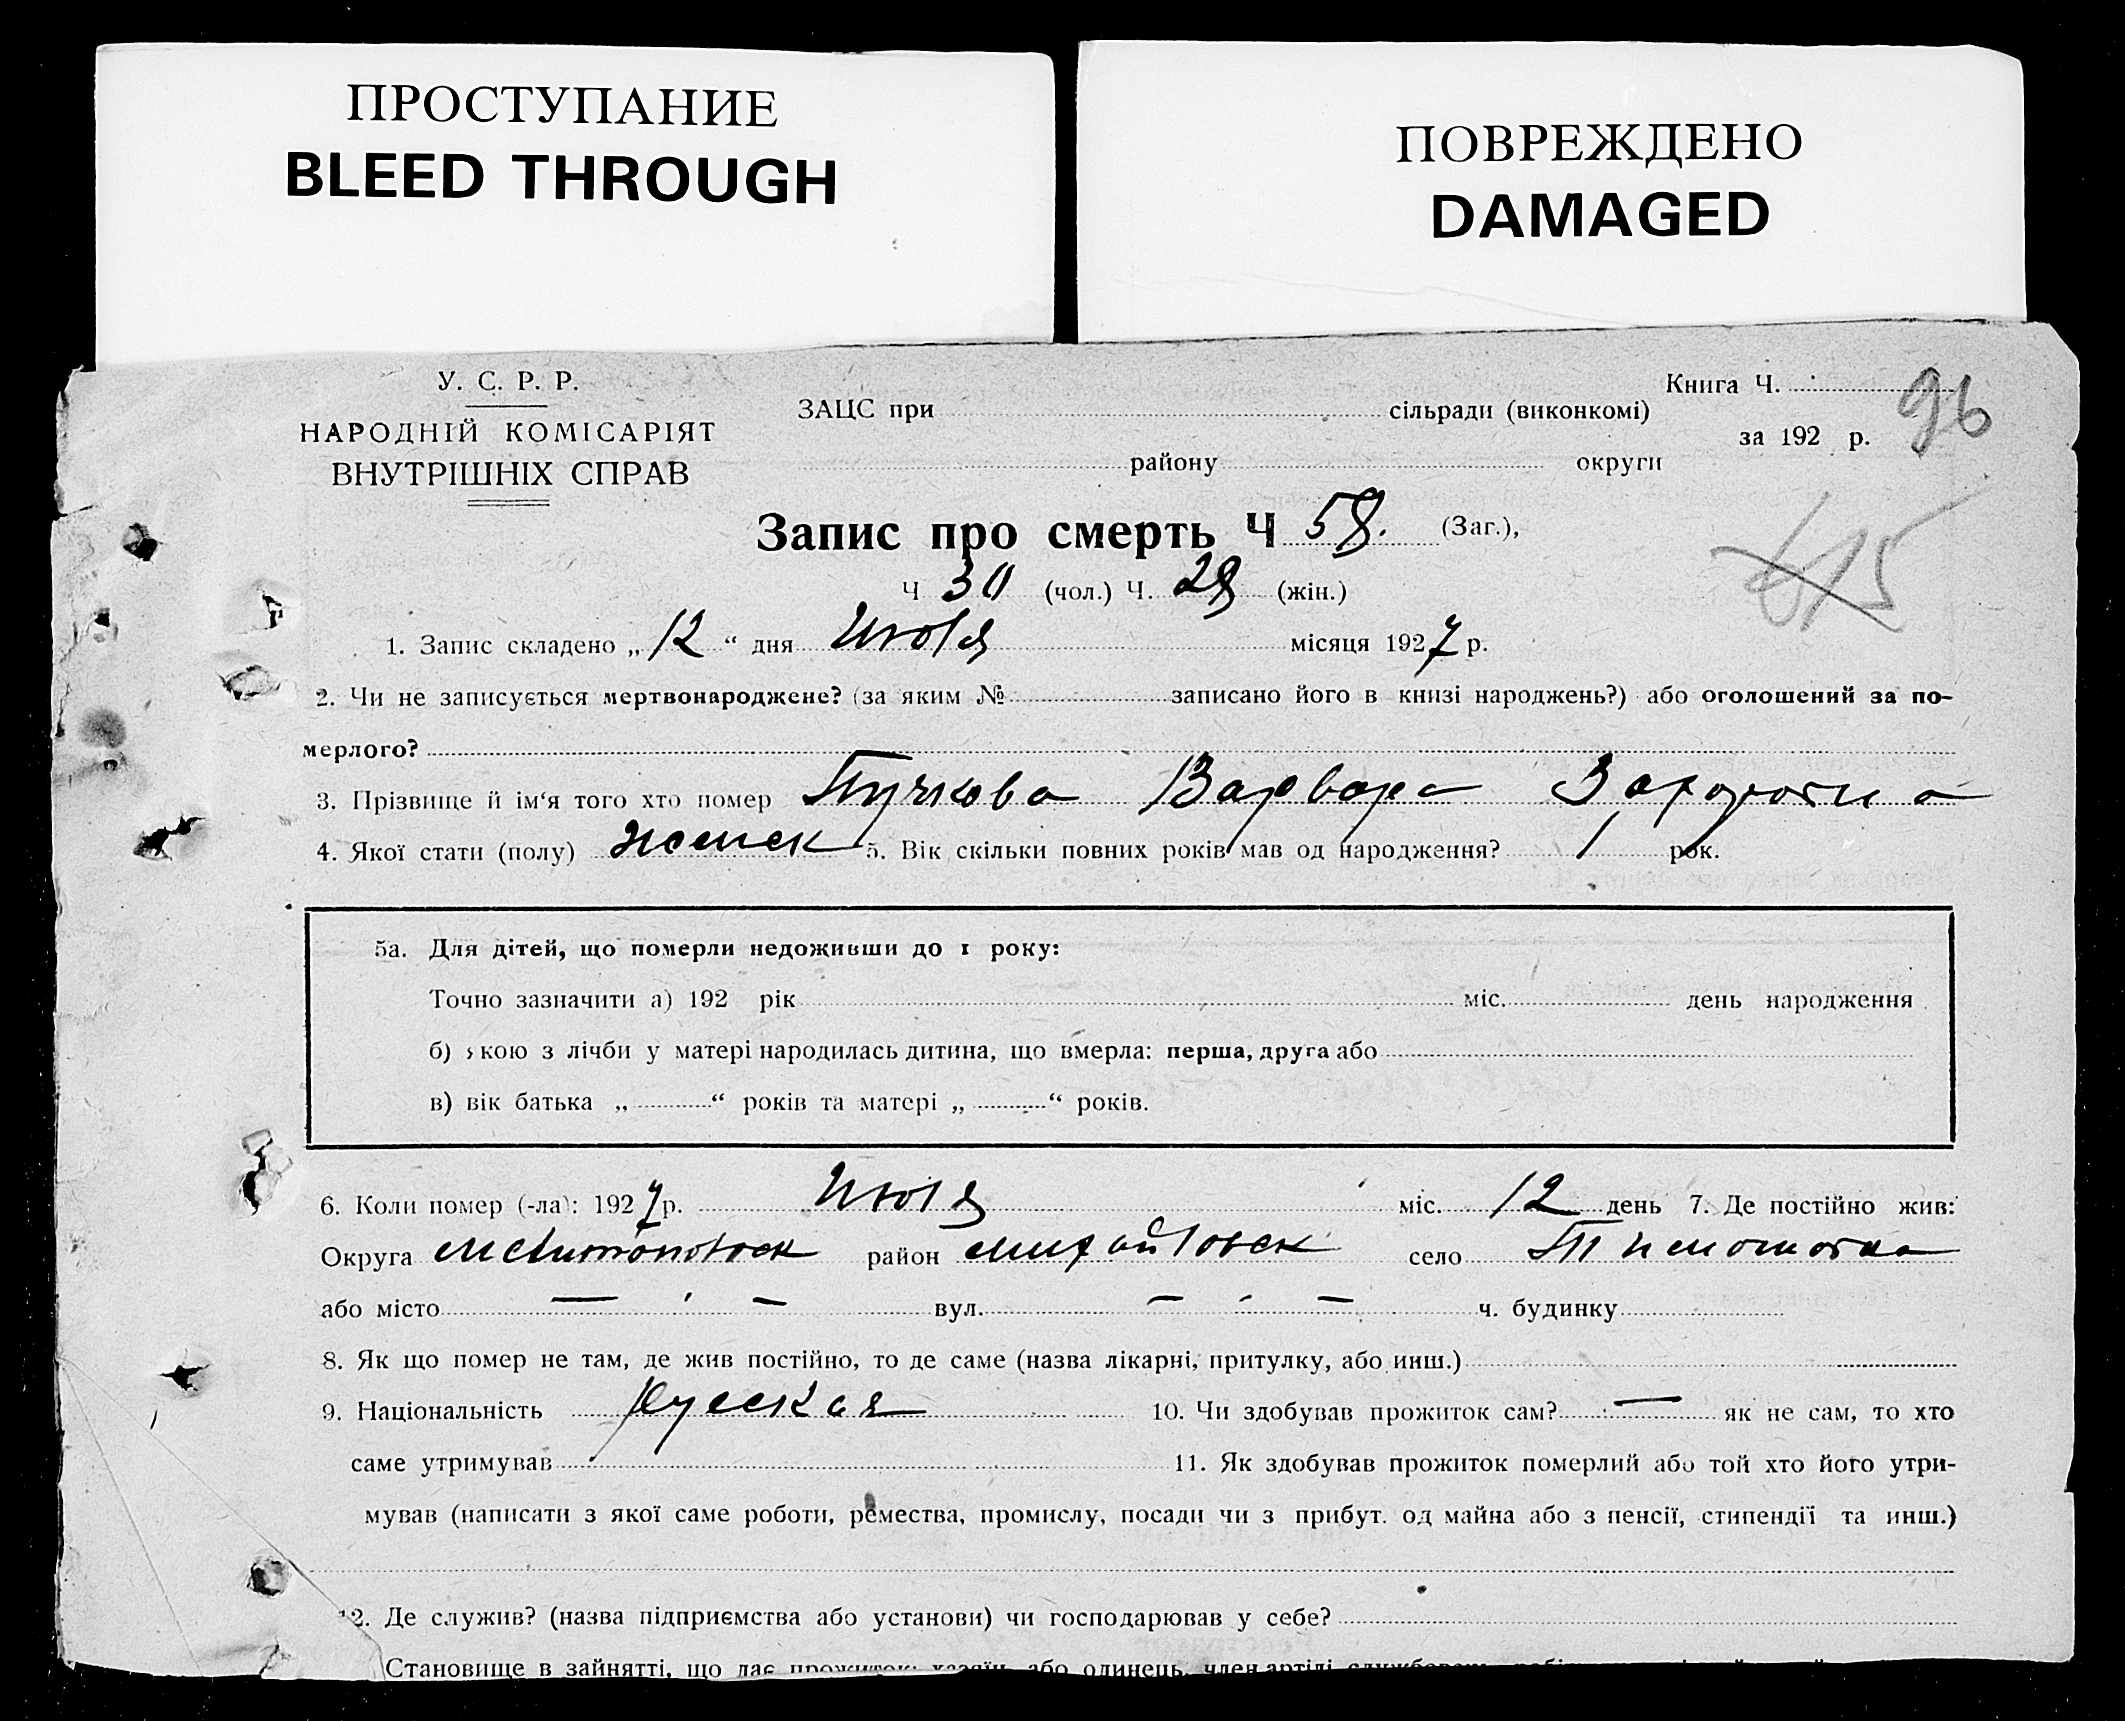 ПРОСТУПАНИЕ
BLEED THROUGH
ПОВРЕЖДЕНО
DAMAGED
У. С. Р. Р.
НАРОДНІЙ КОМІСАРІЯТ
ВНУТРІШНІХ СПРАВ
ЗАЦС при сільради (виконкомі)
району округи
Книга Ч.
за 192 р.
96
615
Запис про смерть Ч 58. (Заг.),
Ч 30 (чол.) Ч. 28 (жін.)
1. Запис складено „12“ дня Июля місяця 1927 р.
2. Чи не записується мертвонароджене? (за яким № записано його в книзі народжень?) або оголошений за по-
мерлого?
3. Прізвище й ім‘я того хто помер Пучкова Варвара
4. Якої стати (полу) женск 5. Вік скільки повних років мав од народження? 1 рок.
5а. Для дітей, що померли недоживши до 1 року:
Точно зазначити а) 192 рік міс. день народження
б) якою з лічби у матері народилась дитина, що вмерла: перша, друга або
в) вік батька „ “ років та матері „ “ років.
6. Коли помер (-ла): 1927 р. Июля міс. 12 день 7. Де постійно жив:
Округа Мелитопольск район Михайловск село Тимошовка
або місто — — вул. — - — ч. будинку
8. Як що помер не там, де жив постійно, то де саме (назва лікарні, притулку, або инш.)
9. Національність Русская 10. Чи здобував прожиток сам? — як не сам, то хто
саме утримував 11. Як здобував прожиток померлий або той хто його утри-
мував (написати з якої саме роботи, ремества, промислу, посади чи з прибут. од майна або з пенсії, стипендії та инш.)
12. Де служив? (назва підприємства або установи) чи господарював у себе?
Становище в зайнятті, що дає прожиток: хазяїн або одинець, член артілі